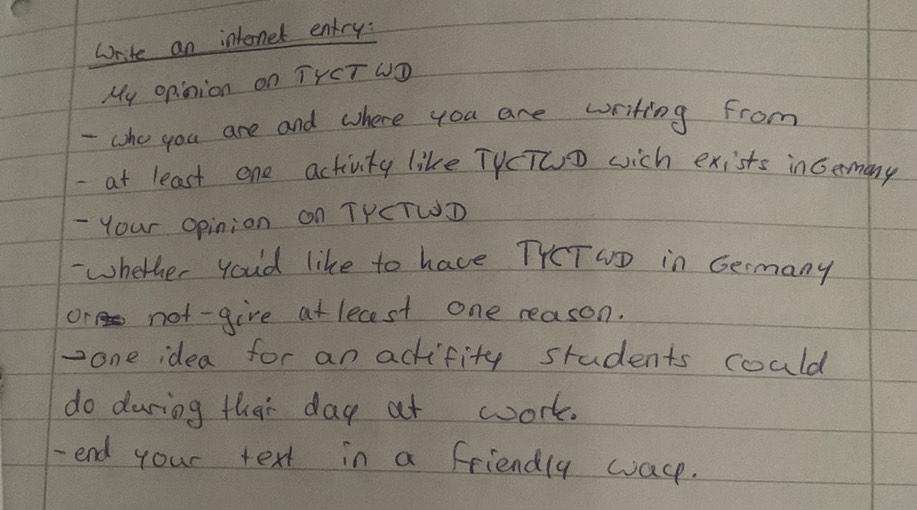 Write an internet entry:
My opinion on TYCTWD
- who you are and where you are writing from
- at least one activity like TYCTWD wich exists in Germany
- Your opinion on TYCTWD
- whether you'd like to have TYCTWD in Germany
or not - give at least one reason.
→ one idea for an actifity students could
do during their day at work.
- end your text in a friendly way.